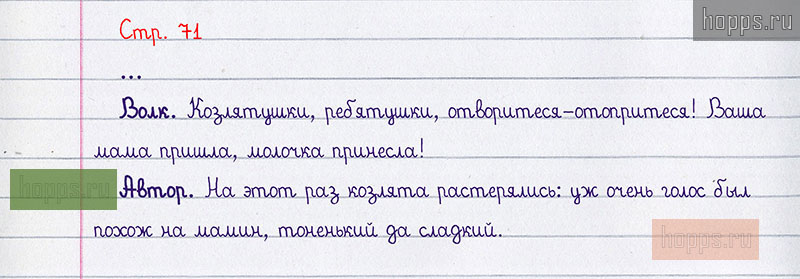 hopps.ru
Стр. 71
...
Волк. Козлятушки, ребятушки, отворитеся-отопритеся! Ваша
мама пришла, молочка принесла!
hopps.ru
Автор. На этот раз козлята растерялись: уж очень голос был
похож на мамин, тоненький да сладкий.
hopps.ru